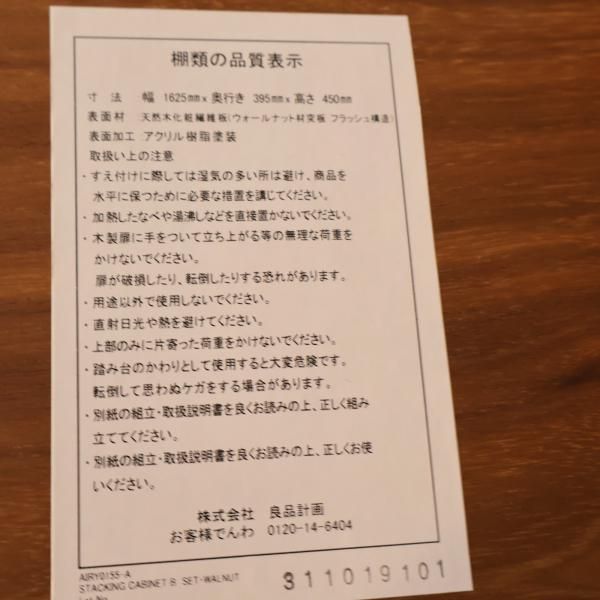 棚類の品質表示
寸 法 幅 1625mm x 奥行き 395mm x 高さ 450mm
表面材 :天然木化粧繊維板(ウォールナット材突板 フラッシュ構造)
表面加工:アクリル樹脂塗装
取扱い上の注意
・すえ付けに際しては湿気の多い所は避け、商品を
水平に保つために必要な措置を講じてください。
・加熱したなべや湯沸しなどを直接置かないでください。
・木製扉に手をついて立ち上がる等の無理な荷重を
かけないでください。
扉が破損したり、転倒したりする恐れがあります。
・用途以外で使用しないでください。
・直射日光や熱を避けてください。
・上部のみに片寄った荷重をかけないでください。
・踏み台のかわりとして使用すると大変危険です。
転倒して思わぬケガをする場合があります。
・別紙の組立・取扱説明書を良くお読みの上、正しく組み
立ててください。
・別紙の組立・取扱説明書を良くお読みの上、正しくお使
いください。
株式会社 良品計画
お客様でんわ 0120-14-6404
AIRY0155-A
STACKING CABINET B SET-WALNUT
Lot No
311019101